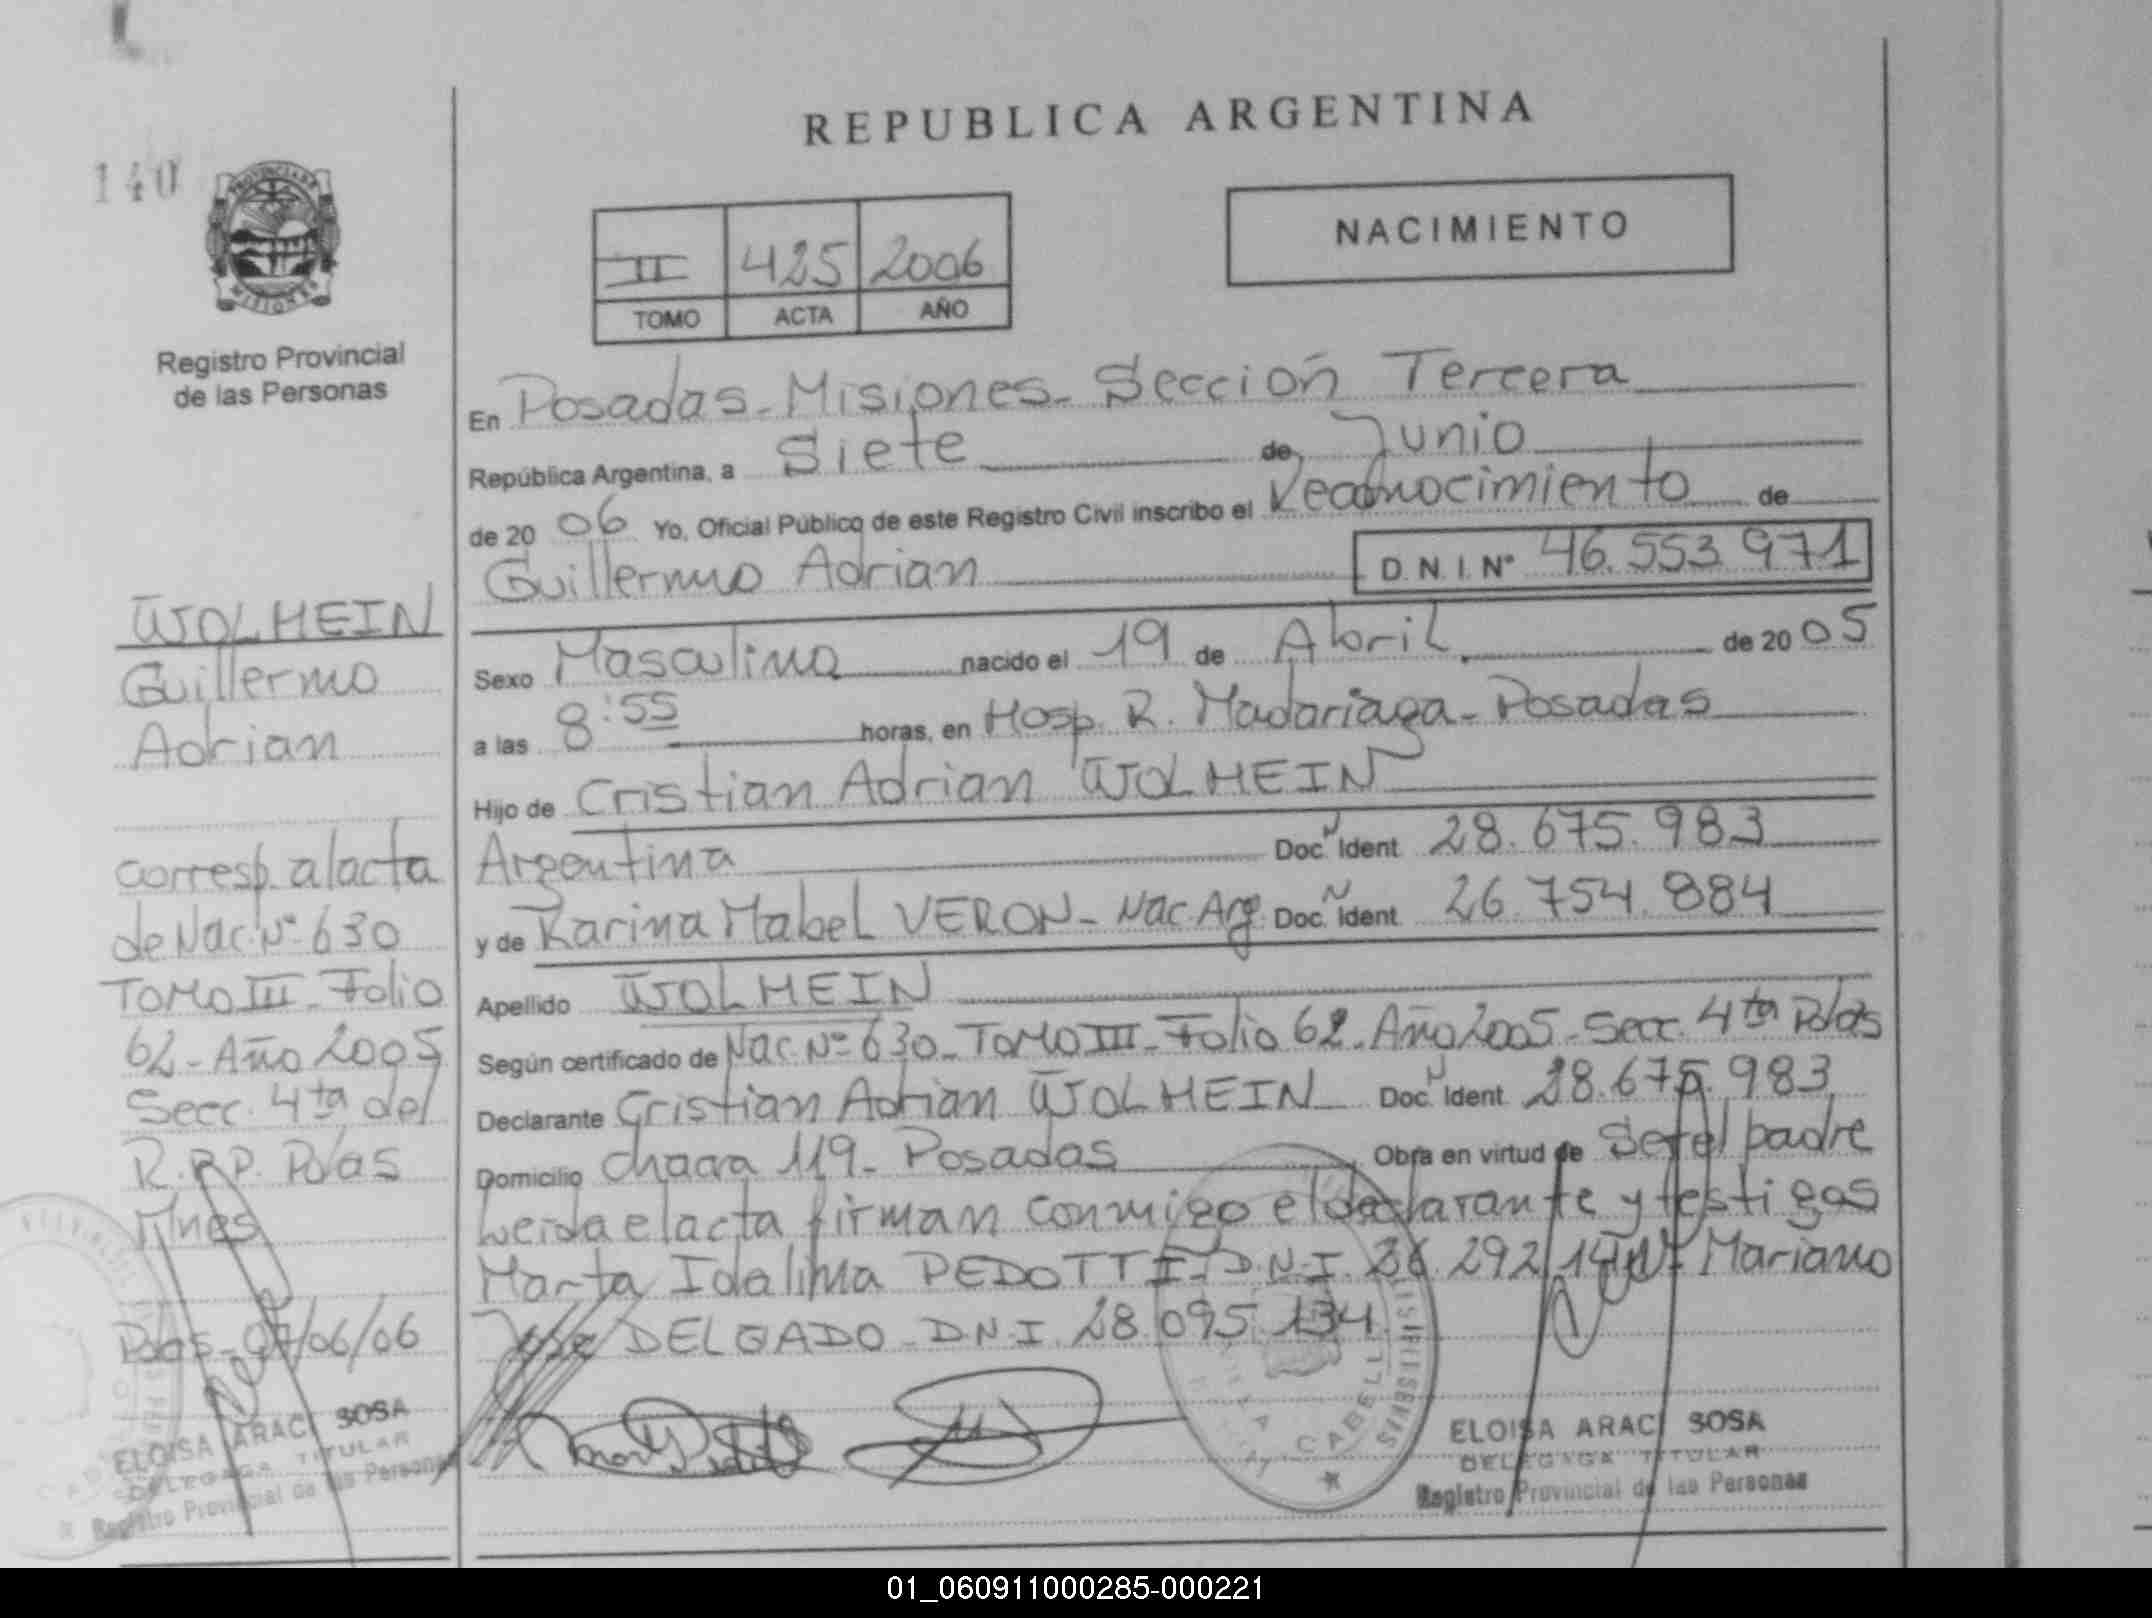 REPUBLICA ARGENTINA
140
NACIMIENTO
II 425 2006
TOMO ACTA AÑO
Registro Provincial
de las Personas
En Posadas - Misiones - Sección Tercera
República Argentina, a Siete de Junio
de 2006 Yo, Oficial Público de este Registro Civil inscribo el Reconocimiento de
Guillermo Adrian D.N.I. Nº 46.553.971
Sexo Masculino nacido el 19 de Abril de 2005
a las 8:55 horas, en Hosp. R. Madariaga - Posadas
Hijo de Cristian Adrian WOLHEIN
Argentina Doc. Ident 28.675.983
y de Karina Mabel VERON - Nac Arg. Doc. Ident 26.754.884
Apellido WOLHEIN
Según certificado de Nac. Nº 630 - TOMO III - Folio 62 - Año 2005 - Secc. 4ta Pdas
Declarante Cristian Adrian WOLHEIN Doc. Ident 28.675.983
Domicilio Chacra 119 - Posadas Obra en virtud de Ser el padre
Leida el acta firman conmigo el declarante y testigos
Marta Idalina PEDOTTI - D.N.I. 292 Mariano
Jose DELGADO - D.N.I. 28.095.134
WOLHEIN
Guillermo
Adrian
corresp. al acta
de Nac. Nº 630
TOMO III - Folio
62 - Año 2005
Secc. 4ta del
R.P.P. Pdas
Mnes
Pdas - 07/06/06
ELOISA ARACI SOSA
DELEGADA TITULAR
Registro Provincial de las Personas
ELOISA ARACI SOSA
DELEGADA TITULAR
Registro Provincial de las Personas
PROVINCIA DE
MISIONES
CABELL
01_060911000285-000221